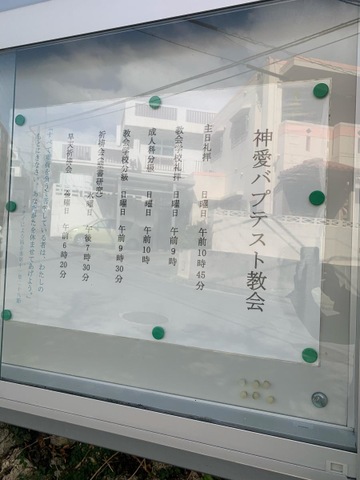 神愛バプテスト教会
主日礼拝　日曜日　午前10時45分
教会学校礼拝　日曜日　午前9時
成人科分級　日曜日　午前10時
教会学校分級　日曜日　午前9時30分
祈祷会(聖書研究)　水曜日　午後7時30分
早天祈祷会　金曜日　午前6時20分